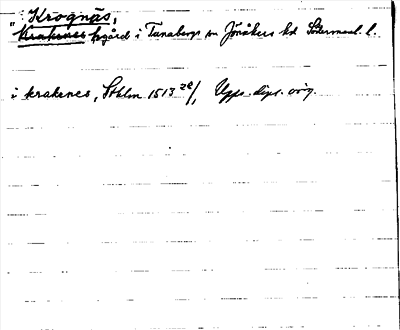 Krognäs,
" Krakenes hgård i Tunabergs sn Jönåkers hd Södermanl. l.
i krakenes, Sthlm 1513 28/1, Upps. dipl. orig.